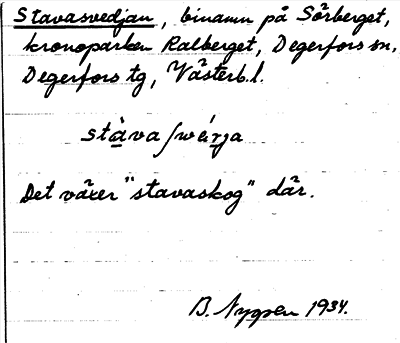 Stavasvedjan, binamn på Sörberget,
kronoparken Kalberget, Degerfors sn,
Degerfors tg, Västerb. l.
Det växer "stavaskog" där.
B. Nygren 1934.